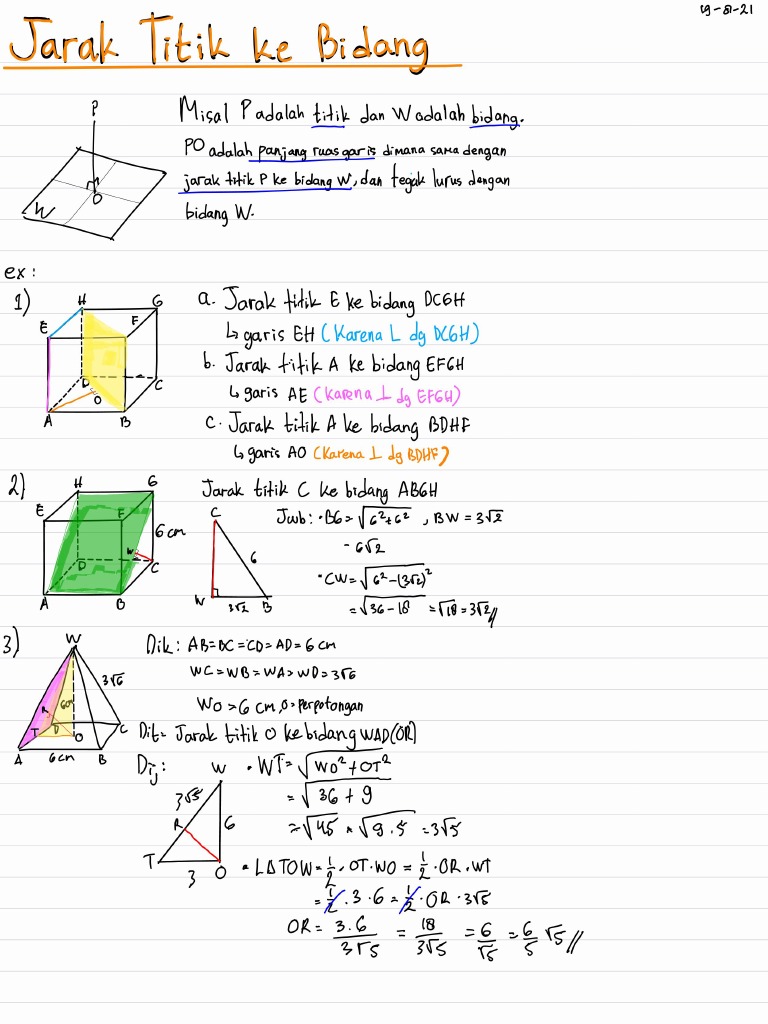 19-8-21
Jarak Titik ke Bidang
P
O
W
Misal P adalah titik dan W adalah bidang.
PO adalah panjang ruas garis dimana sama dengan
jarak titik P ke bidang W, dan tegak lurus dengan
bidang W.
ex :
1)
H G
E F
D C
O
A B
a. Jarak titik E ke bidang DCGH
↳ garis EH (Karena ⊥ dg DCGH)
b. Jarak titik A ke bidang EFGH
↳ garis AE (Karena ⊥ dg EFGH)
c. Jarak titik A ke bidang BDHF
↳ garis AO (Karena ⊥ dg BDHF)
2)
H G
E F
6 cm
W
D C
A B
Jarak titik C ke bidang ABGH
C
6
W 3√2 B
Jwb: • BG = √6²+6² , BW = 3√2
= 6√2
• CW = √6²-(3√2)²
= √36-18 = √18 = 3√2 //
3)
W
3√6
6cm
R
T D O C
A 6cm B
Dik : AB=DC=CD=AD= 6 cm
WC=WB=WA=WD=3√6
WO = 6 cm, O = perpotongan
Dit = Jarak titik O ke bidang WAD (OR)
Dij :
W
3√5
R 6
T O
3
• WT = √WO²+OT²
= √36+9
= √45 = √9.5 = 3√5
• L∆TOW = 1/2 . OT . WO = 1/2 . OR . WT
= 1/2 . 3 . 6 = 1/2 . OR . 3√5
OR = 3.6/3√5 = 18/3√5 = 6/√5 = 6/5 √5 //